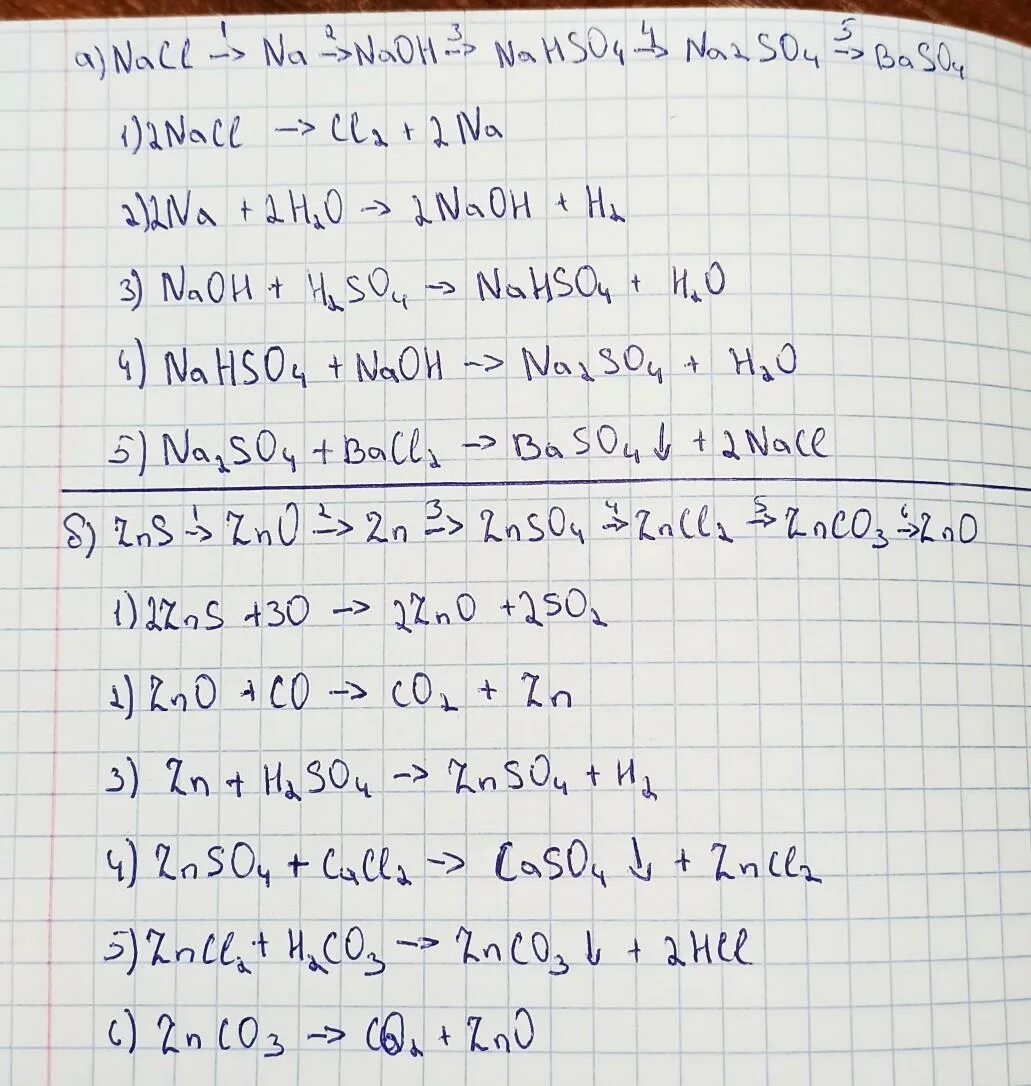 а) NaCl 1→ Na 2→ NaOH 3→ NaHSO4 4→ Na2SO4 5→ BaSO4
1) 2NaCl → Cl2 + 2Na
2) 2Na + 2H2O → 2NaOH + H2
3) NaOH + H2SO4 → NaHSO4 + H2O
4) NaHSO4 + NaOH → Na2SO4 + H2O
5) Na2SO4 + BaCl2 → BaSO4↓ + 2NaCl
б) ZnS 1→ ZnO 2→ Zn 3→ ZnSO4 4→ ZnCl2 5→ ZnCO3 6→ ZnO
1) 2ZnS + 3O → 2ZnO + 2SO2
2) ZnO + CO → CO2 + Zn
3) Zn + H2SO4 → ZnSO4 + H2
4) ZnSO4 + CaCl2 → CaSO4↓ + ZnCl2
5) ZnCl2 + H2CO3 → ZnCO3↓ + 2HCl
6) ZnCO3 → CO2 + ZnO